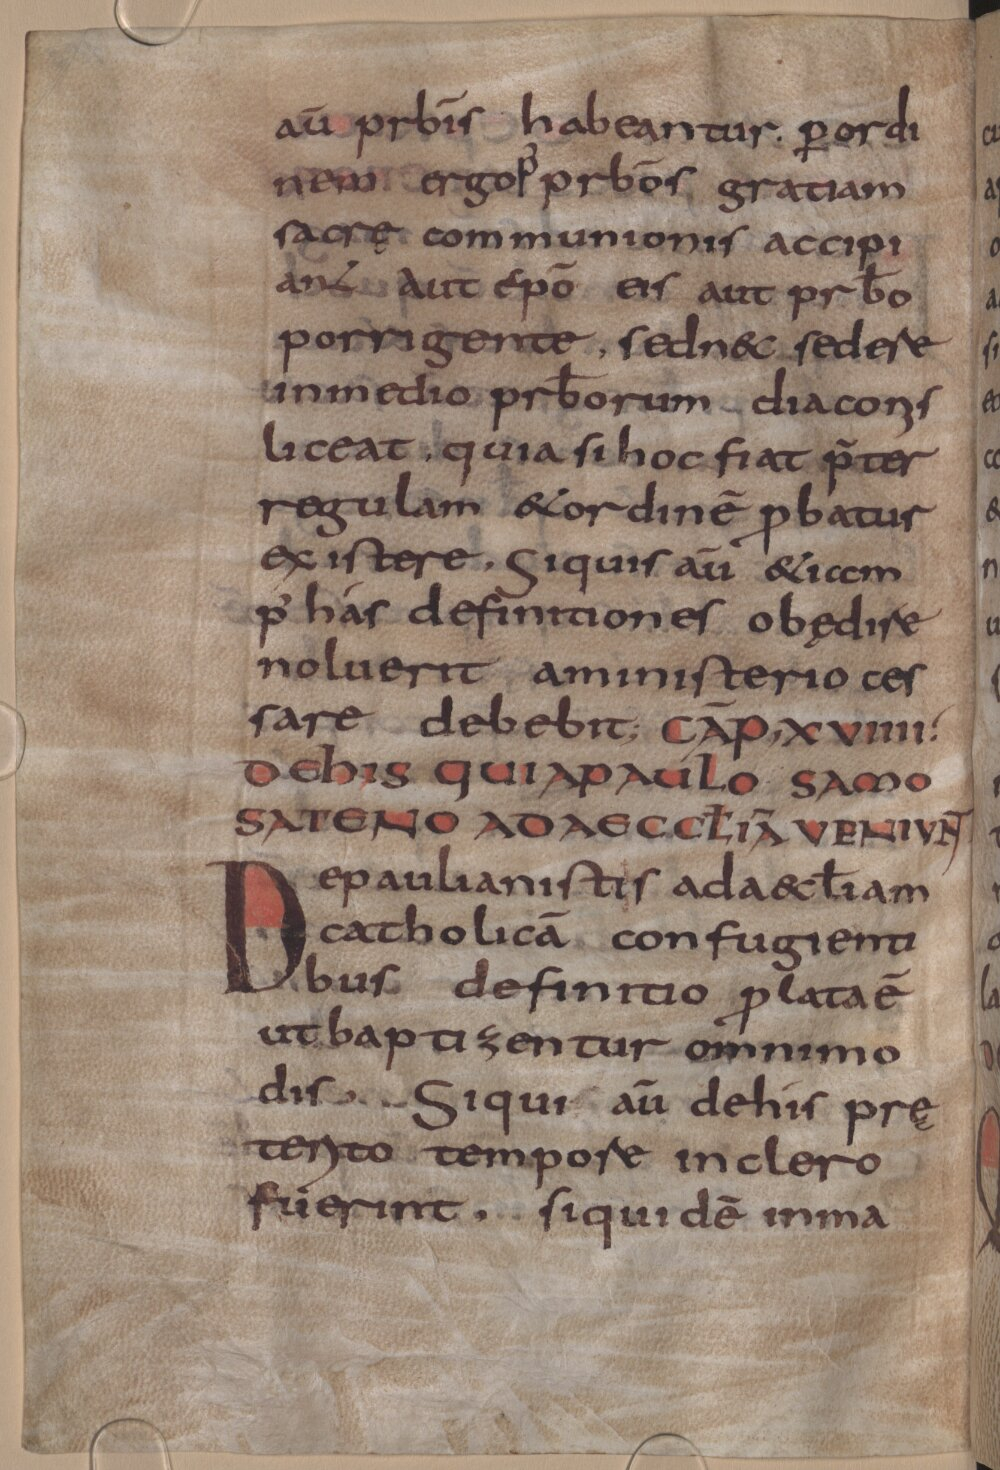 aū prb̄is habeantur. ꝑordi
nem ergo p̓ prb̄os gratiam
sacrę communionis accipi
ant Aut ep̄o eis aut prb̄o
porrigente, sedn& sedere
inmedio prb̄orum diaconis
liceat, quia si hoc fiat p̄ter
regulam &ordinē ꝓbatur
existere. Siquis aū &iam
p̓ has definitiones obędire
noluerit aministerio ces
sare debebit; CAP̄, XVIIII:
DEhIS QUI APAULO SAMO
SATENO ADAECCL̄IĀ VENIUNT
Depaulianistis adaeccl̄iam
catholicā confugienti
bus definitio ꝓlataē
utbaptizentur omnimo
dis. Siqui aū dehis prę
terito tempore inclero
fuerint, siquidē inma